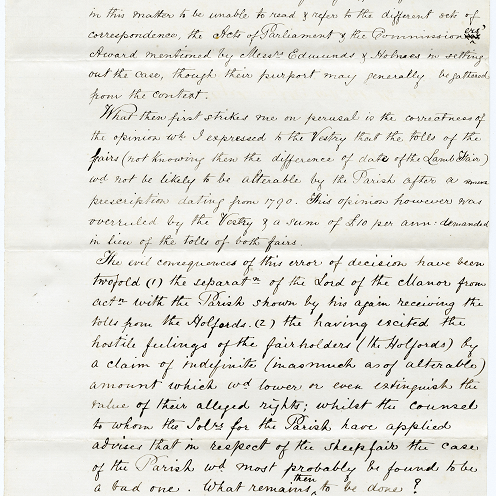 in this matter to be unable to read & refer to the different sets of
correspondence, the Acts of Parliament & the Commissioners
Award mentioned by Messrs Edmunds & Holmes in setting
out the case, though their purport may generally be gathered
from the context.
What then first strikes me on perusal is the correctness of
the opinion wh I expressed to the Vestry that the tolls of the
fairs (not knowing then the difference of date of the Lamb Fair)
wd not be likely to be alterable by the Parish after a
prescription dating from 1790. This opinion however was
overruled by the Vestry & a sum of £10 per ann: demanded
in lieu of the tolls of both fairs.
The evil consequences of this error of decision have been
twofold (1) the separatn of the Lord of the Manor from
actn with the Parish shown by his again receiving the
tolls from the Holfords. (2) the having excited the
hostile feelings of the fairholders (the Holfords) by
a claim of indefinite (inasmuch as of alterable)
amount which wd lower or even extinguish the
value of their alleged rights; whilst the counsel
to whom the Solrs for the Parish have applied
advises that in respect of the sheepfair the case
of the Parish wd most probably be found to be
a bad one. What remains then to be done?